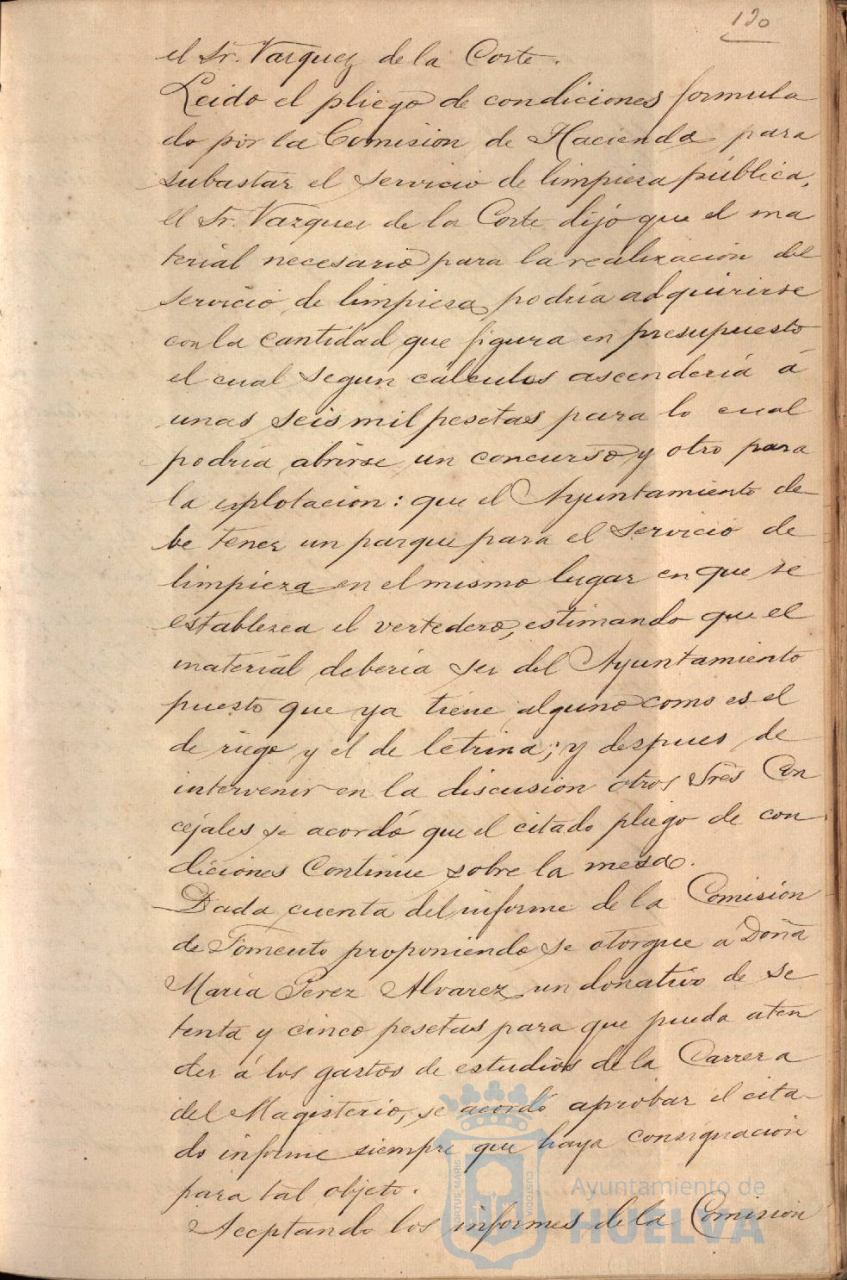 120
el Sr. Vazquez de la Corte.
Leido el pliego de condiciones formula
do por la Comision de Hacienda para
subastar el servicio de limpiesa pública,
el Sr. Vazquez de la Corte dijo que el ma
terial necesario para la realizacion del
servicio de limpiesa podria adquirirse
con la cantidad que figura en presupuesto
el cual segun cálculos ascenderia á
unas seis mil pesetas para lo cual
podria abrirse un concurso y otro para
la esplotacion: que el Ayuntamiento de
be tener un parque para el servicio de
limpieza en el mismo lugar en que se
establezca el vertedero, estimando que el
material deberia ser del Ayuntamiento
puesto que ya tiene alguno como es el
de riego y el de letrina; y despues de
intervenir en la discusion otros Sres Con
cejales se acordó que el citado pliego de con
diciones continue sobre la mesa.
Dada cuenta del informe de la Comisión
de Fomento proponiendo se otorgue á Doña
Maria Perez Alvarez un donativo de se
tenta y cinco pesetas para que pueda aten
der á los gastos de estudios de la Carrera
del Magisterio, se acordó aprobar el cita-
do informe siempre que haya consignacion
para tal objeto.
Aceptando los informes de la Comision
Ayuntamiento de
HUELVA